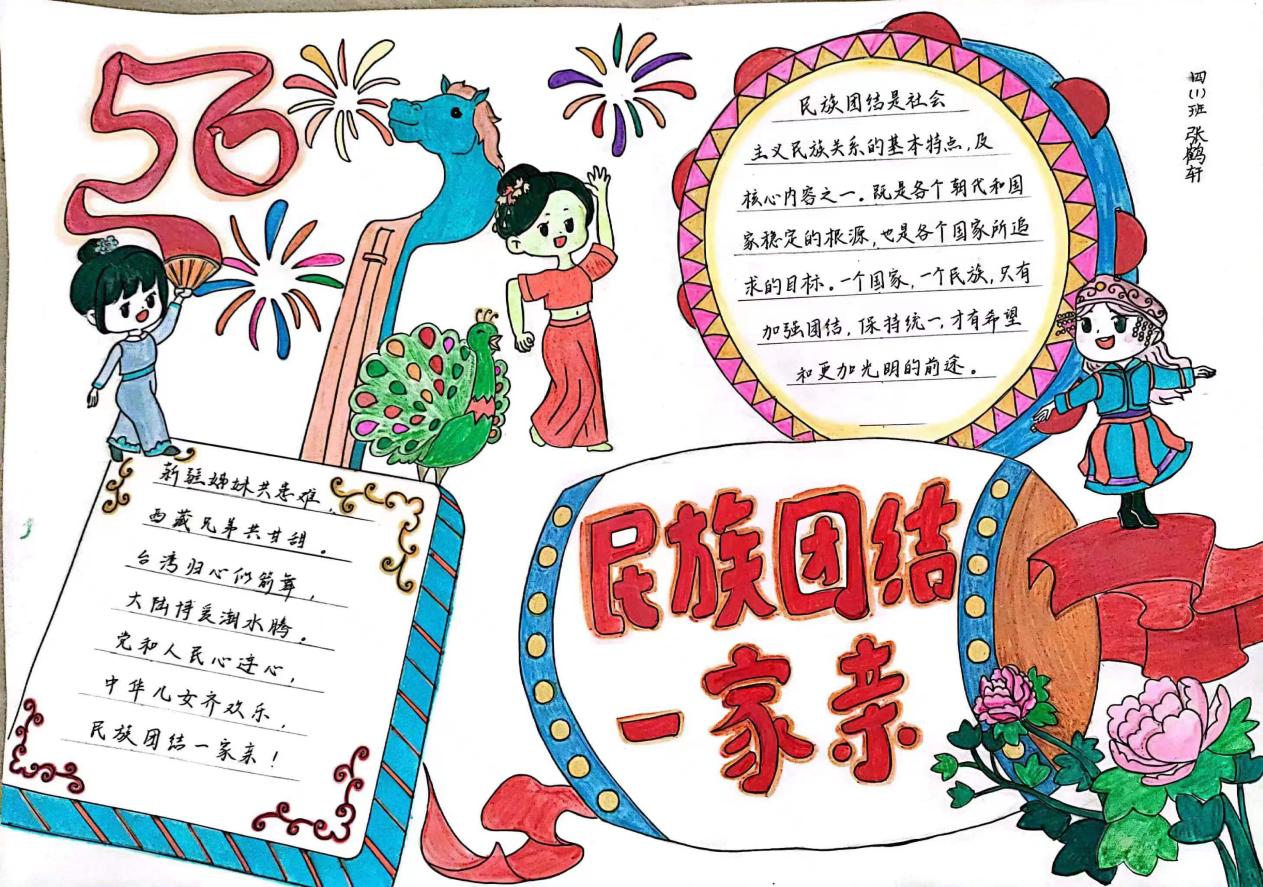 56
四(1)班 张鹤轩
民族团结是社会
主义民族关系的基本特点,及
核心内容之一。既是各个朝代和国
家稳定的根源,也是各个国家所追
求的目标。一个国家,一个民族,只有
加强团结,保持统一,才有希望
和更加光明的前途。
新疆姊妹共患难,
西藏兄弟共甘甜。
台湾归心似箭奔,
大陆博爱潮水腾。
党和人民心连心,
中华儿女齐欢乐,
民族团结一家亲!
民族团结
一家亲